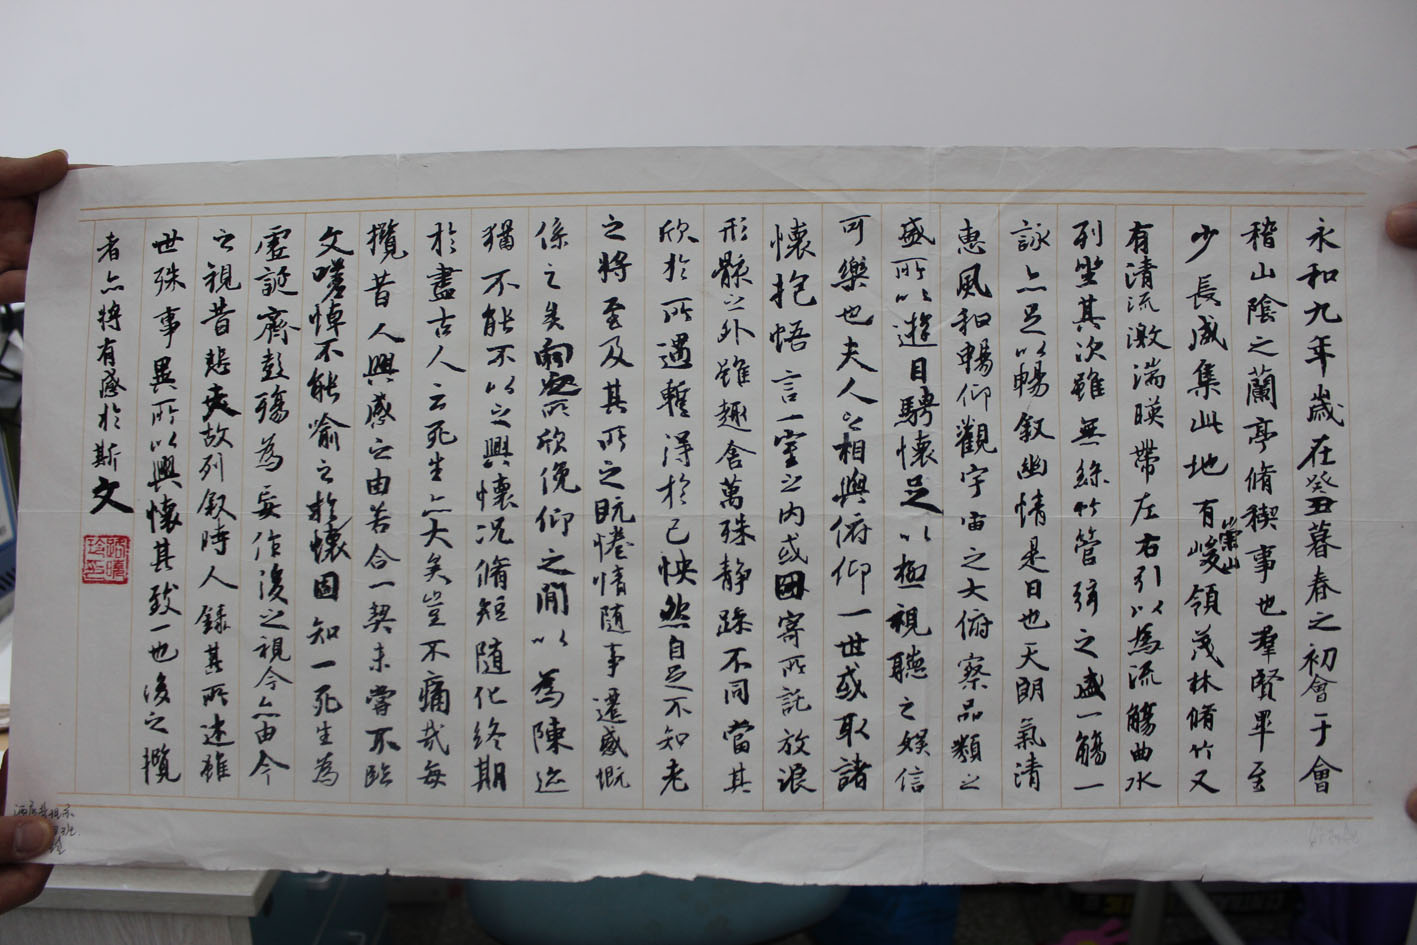 永和九年歲在癸丑暮春之初會于會
稽山陰之蘭亭脩稧事也羣賢畢至
少長咸集此地有崇山峻領茂林脩竹又
有清流激湍暎帶左右引以為流觴曲水
列坐其次雖無絲竹管弦之盛一觴一
詠亦足以暢叙幽情是日也天朗氣清
惠風和暢仰觀宇宙之大俯察品類之
盛所以遊目騁懷足以極視聽之娛信
可樂也夫人之相與俯仰一世或取諸
懷抱悟言一室之內或因寄所託放浪
形骸之外雖趣舍萬殊静躁不同當其
欣於所遇暫得於己怏然自足不知老
之將至及其所之既惓情隨事遷感慨
係之矣向之所欣俛仰之閒以為陳迹
猶不能不以之興懷况脩短隨化終期
於盡古人云死生亦大矣豈不痛哉每
攬昔人興感之由若合一契未嘗不臨
文嗟悼不能喻之於懷固知一死生為
虛誕齊彭殤為妄作後之視今亦由今
之視昔悲夫故列叙時人錄其所述雖
世殊事異所以興懷其致一也後之攬
者亦將有感於斯文